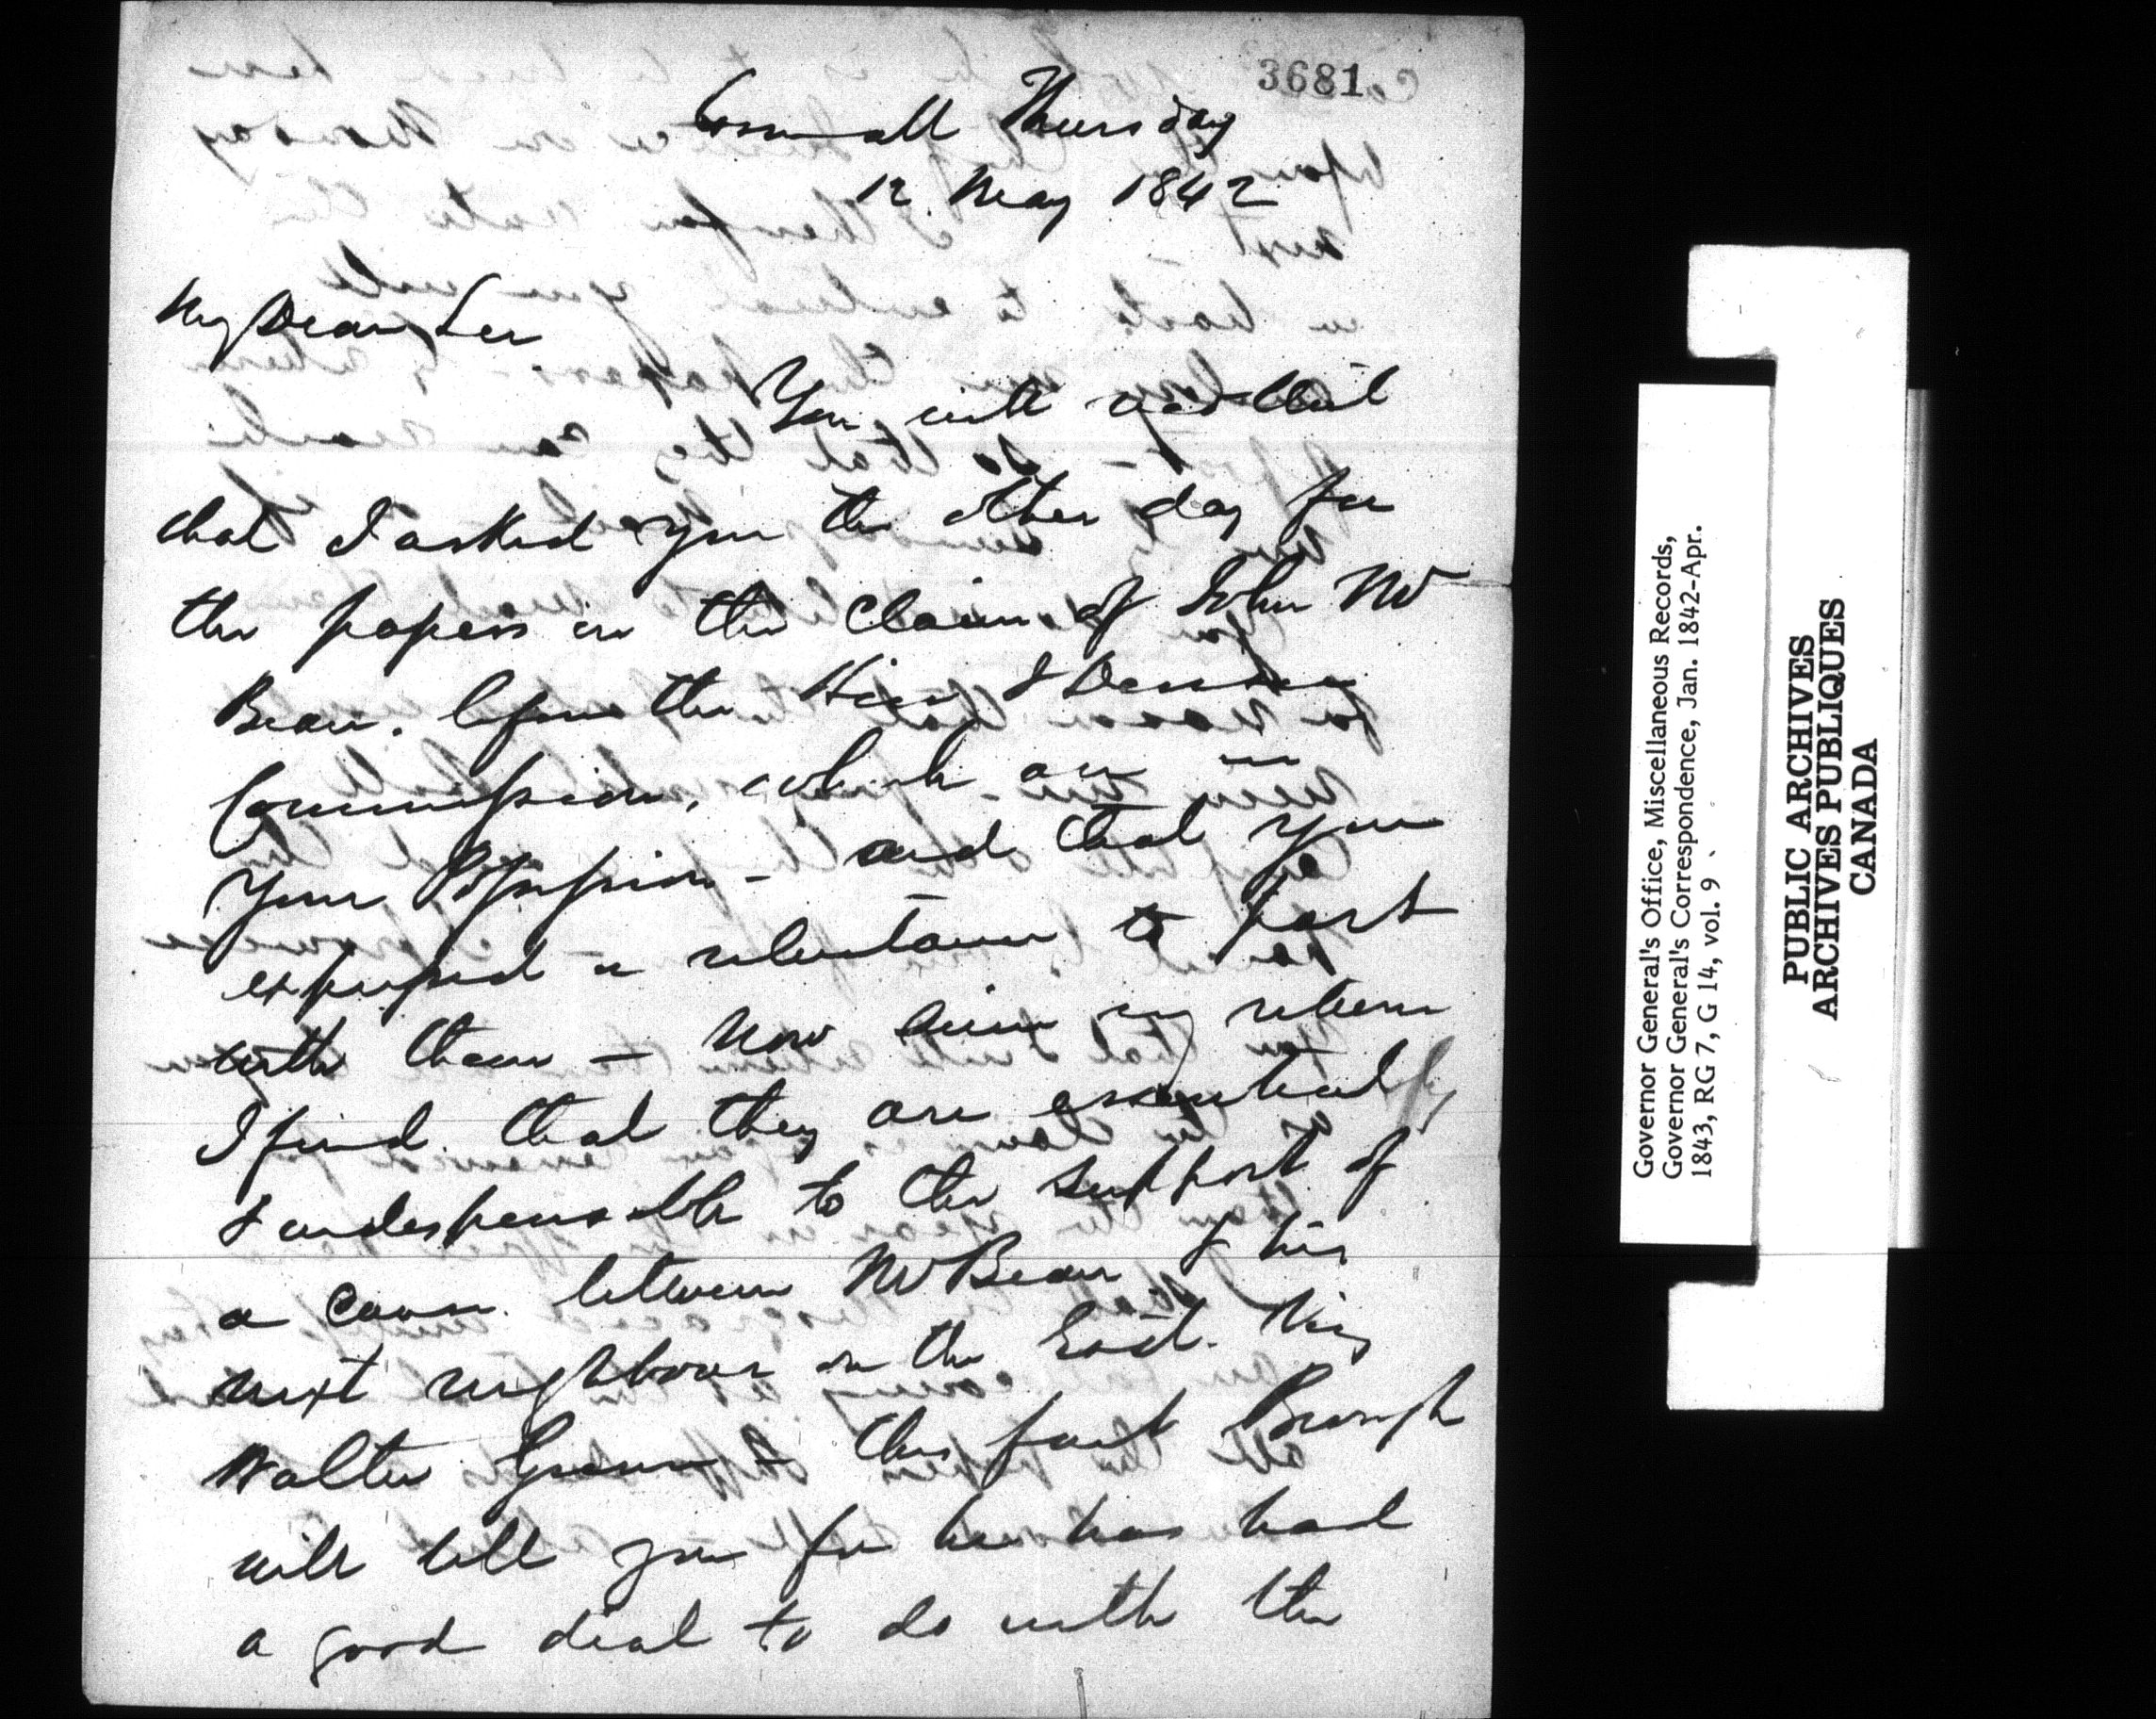 3681
Cornwall Thursday
12. May 1842
My Dear Sir
You will recollect
that I asked you the other day for
the papers in the Claim of John Mc
Bean. before the Heir & Devisee
Commission, which are in
Your Possession - and that you
expressed a reluctance to part
with them - Now since my return
I find that they are essential
& indespensable to the support of
a Cause between McBean & his
next neighbour on the East. Viz
Walter - this fact Brough
will tell you for he has had
a good deal to do with the
Governor General's Office, Miscellaneous Records,
Governor General's Correspondence, Jan. 1842-Apr.
1843, RG 7, G 14, vol. 9
PUBLIC ARCHIVES
ARCHIVES PUBLIQUES
CANADA